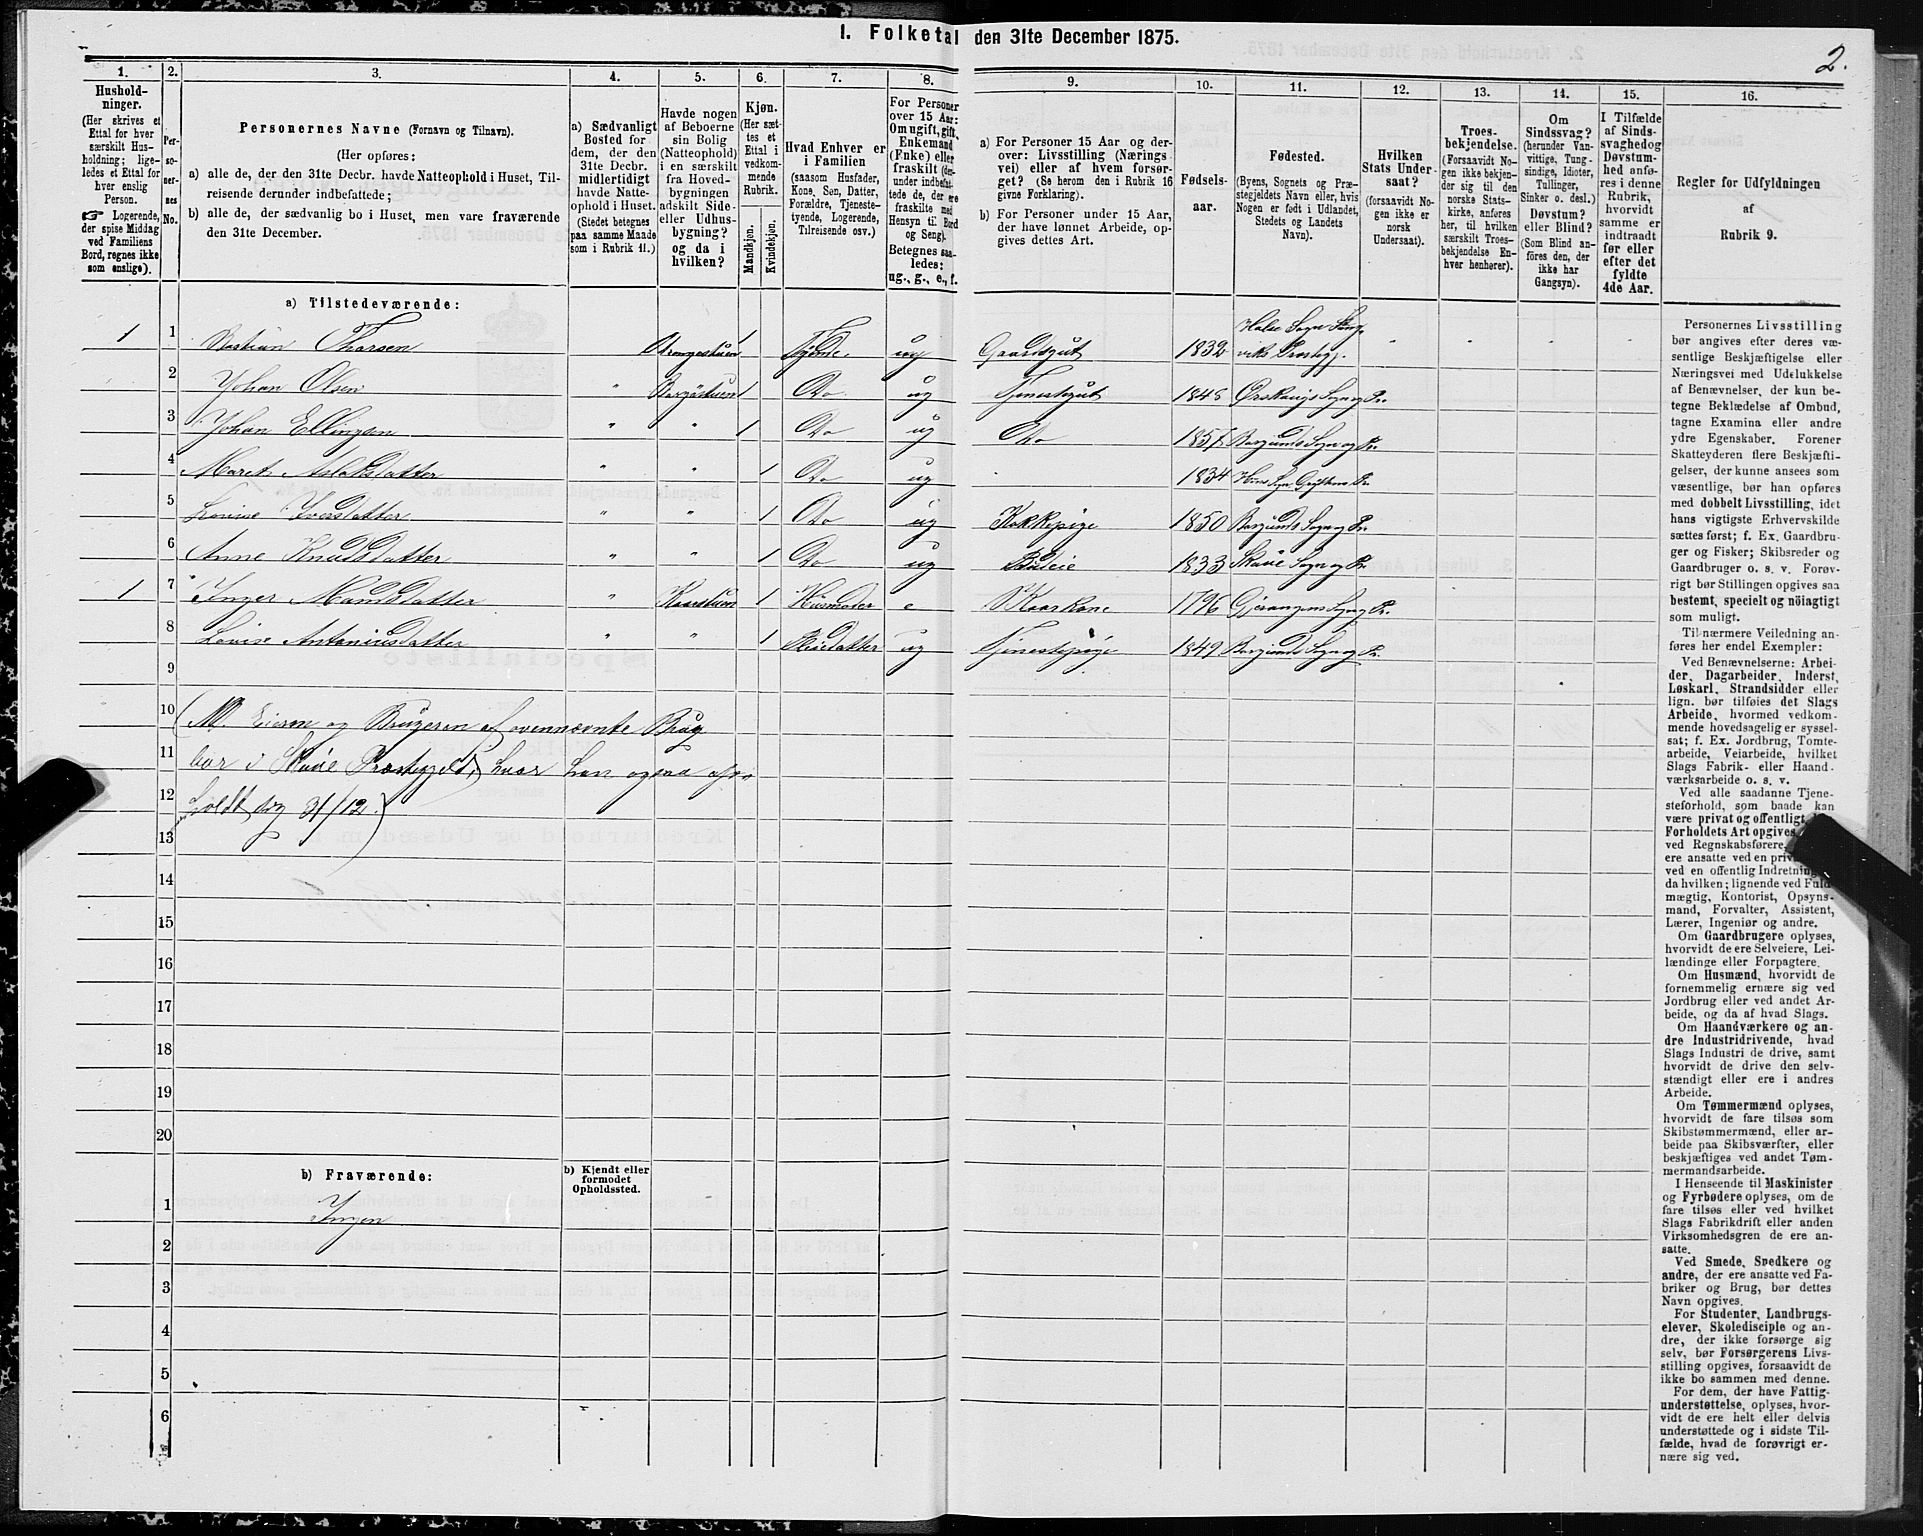 I. Folketal den 31te December 1875.
2.
1.
2.
3.
4.
5.
6.
7.
8.
9.
10.
11.
12.
13.
14.
15.
16.
Hushold-
ninger.
(Her skrives et
Ettal for hver
særskilt Hus-
holdning; lige-
ledes et Ettal for
hver enslig
Person.
☞ Logerende,
der spise Middag
ved Familiens
Bord, regnes ikke
som enslige).
Per-
so-
ner-
nes
No.
Personernes Navne (Fornavn og Tilnavn).
(Her opføres:
a) alle de, der den 31te Decbr. havde Natteophold i Huset, Til-
reisende derunder indbefattede;
b) alle de, der sædvanlig bo i Huset, men vare fraværende
den 31te December.
a) Sædvanligt
Bosted for
dem, der den
31te Decbr.
midlertidigt
havde Natte-
ophold i Huset.
(Stedet betegnes
paa samme Maade
som i Rubrik 11.)
Havde nogen
af Beboerne
sin Bolig
(Natteophold)
i en særskilt
fra Hoved-
bygningen
adskilt Side-
eller Udhus-
bygning?
og da i
hvilken?
Kjøn.
(Her sæt-
tes et
Ettal i
vedkom-
mende
Rubrik.
Mandkjøn.
Kvindekjøn.
Hvad Enhver er
i Familien
(saasom Husfader,
Kone, Søn, Datter,
Forældre, Tjeneste-
tyende, Logerende,
Tilreisende osv.)
For Personer
over 15 Aar:
Om ugift, gift,
Enkemand
(Enke) eller
fraskilt (her-
under indbefat-
tede de, der ere
fraskilte med
Hensyn til Bord
og Seng).
Betegnes saa-
ledes:
ug., g., e., f.
a) For Personer 15 Aar og der-
over: Livsstilling (Nærings-
vei) eller af hvem forsør-
get? (Se herom den i Rubrik 16
givne Forklaring).
b) For Personer under 15 Aar,
der have lønnet Arbeide, op-
gives dettes Art.
Fødsels-
aar.
Fødested.
(Byens, Sognets og Præ-
stegjeldets Navn eller, hvis
Nogen er født i Udlandet,
Stedets og Landets
Navn).
Hvilken
Stats Under-
saat?
(forsaavidt No-
gen ikke er
norsk
Undersaat).
Troes-
bekjendelse.
(Forsaavidt No-
gen ikke bekjen-
der sig til den
norske Stats-
kirke, anføres
her, til hvilken
særskilt Troes-
bekjendelse En-
hver henhører).
Om
Sindssvag?
(herunder Van-
vittige, Tung-
sindige, Idioter,
Tullinger,
Sinker o. desl.)
Døvstum?
eller Blind?
(Som Blind an-
føres den, der
ikke har
Gangsyn).
I Tilfælde
af Sinds-
svaghed og
Døvstum-
hed anfø-
res i denne
Rubrik,
hvorvidt
samme er
indtraadt
før eller
efter det
fyldte
4de Aar.
Regler for Udfyldningen
af
Rubrik 9.
a) Tilstedeværende:
1 1 Bastian Thorsen 1 Tjene. ug Gaardsgut 1832
2 Johan Olsen " Borgestuen 1 Do ug Tjenestgut 1848 Ørskougs Sogn og Pr.
3 Johan Ellingsen " " 1 Do ug Do Borgunds Sogn og Pr.
4 Maret Aslaksdatter " " 1 Do ug 1834
5 Lovise Iversdatter " " 1 Do ug Kokkepige 1850 Borgunds Sogn og Pr.
6 Anne Knudsdatter " " 1 Do ug Budeie 1833 Skoue Sogn og Pr.
1 7 Inger Mandsdatter " Kaarstuen 1 Husmoder e Kaarkone 1796
8 Lovise Antoniusdatter " " 1 Pleiedatter ug Tjenestepige 1849 Borgunds Sogn og Pr.
9
10 Eieren og Brugeren af ovennævnte Brug
11 bor i Skoue Præstegjeld, hvor han ogsaa op-
12 holdt sig 31/12.)
13
14
15
16
17
18
19
20
b) Fraværende:
b) Kjendt eller
formodet
Opholdssted.
1 Ingen
2
3
4
5
6
Personernes Livsstilling
bør angives efter deres væ-
sentlige Beskjæftigelse eller
Næringsvei med Udelukkelse
af Benævnelser, der kun be-
tegne Beklædelse af Ombud,
tagne Examina eller andre
ydre Egenskaber. Forener
Skatteyderen flere Beskjæfti-
gelser, der kunne ansees som
væsentlige, bør han opføres
med dobbelt Livsstilling, idet
hans vigtigste Erhvervskilde
sættes først; f. Ex. Gaardbru-
ger og Fisker; Skibsreder og
Gaardbruger o. s. v. Forøv-
rigt bør Stillingen opgives saa
bestemt, specielt og nöiagtigt
som muligt.
Til nærmere Veiledning an-
føres her endel Exempler:
Ved Benævnelserne: Arbei-
der, Dagarbeider, Inderst,
Løskarl, Strandsidder eller
lign. bør tilføies det Slags
Arbeide, hvormed vedkom-
mende hovedsagelig er syssel-
sat; f. Ex. Jordbrug, Tomte-
arbeide, Veiarbeide, hvilket
Slags Fabrik- eller Haand-
værksarbeide o. s. v.
Ved alle saadanne Tjene-
steforhold, som baade kan
være privat og offentligt,
Forholdets Art opgives,
ved Regnskabsførere,
ere ansatte ved en
ved en offentlig Indretning
da hvilken; lignende ved Fuld-
mægtig, Kontorist, Opsyns-
mand, Forvalter, Assistent,
Lærer, Ingeniør og andre.
Om Gaardbrugere oplyses,
hvorvidt de ere Selveiere, Lei-
lændinge eller Forpagtere.
Om Husmænd, hvorvidt de
fornemmelig ernære sig ved
Jordbrug eller ved andet Ar-
beide, og da af hvad Slags.
Om Haandværkere og an-
dre Industridrivende, hvad
Slags Industri de drive, samt
hvorvidt de drive den selv-
stændigt eller ere i andres
Arbeide.
Om Tømmermænd oplyses,
hvorvidt de fare tilsøs som
Skibstømmermænd, eller ar-
beide paa Skibsværfter, eller
beskjæftiges ved andet Tøm-
mermandsarbeide.
I Henseende til Maskinister
og Fyrbødere oplyses, om de
fare tilsøs eller ved hvilket
Slags Fabrikdrift eller anden
Virksomhedsgren de ere an-
satte.
Ved Smede, Snedkere og
andre, der ere ansatte ved Fa-
briker og Brug, bør dettes
Navn opgives.
For Studenter, Landbrugs-
elever, Skoledisciple og an-
dre, der ikke forsørge sig
selv, bør Forsørgerens Livs-
stilling opgives, forsaavidt de
ikke bo sammen med denne.
For dem, der have Fattig-
understøttelse, oplyses, hvor-
vidt de ere helt eller delvis
understøttede og i sidste Til-
fælde, hvad de forøvrigt er-
nære sig ved.